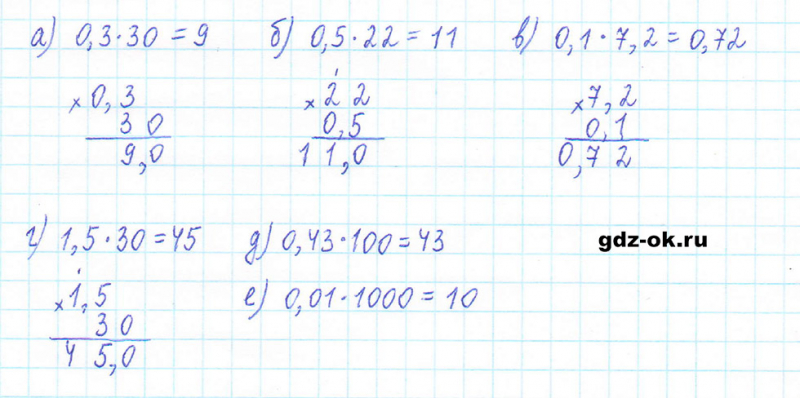 а) 0,3·30=9 б) 0,5·22=11 в) 0,1·7,2=0,72
×0,3
30
9,0
1
×22
0,5
11,0
×7,2
0,1
0,72
г) 1,5·30=45 д) 0,43·100=43
е) 0,01·1000=10
gdz-ok.ru
1
×1,5
30
45,0